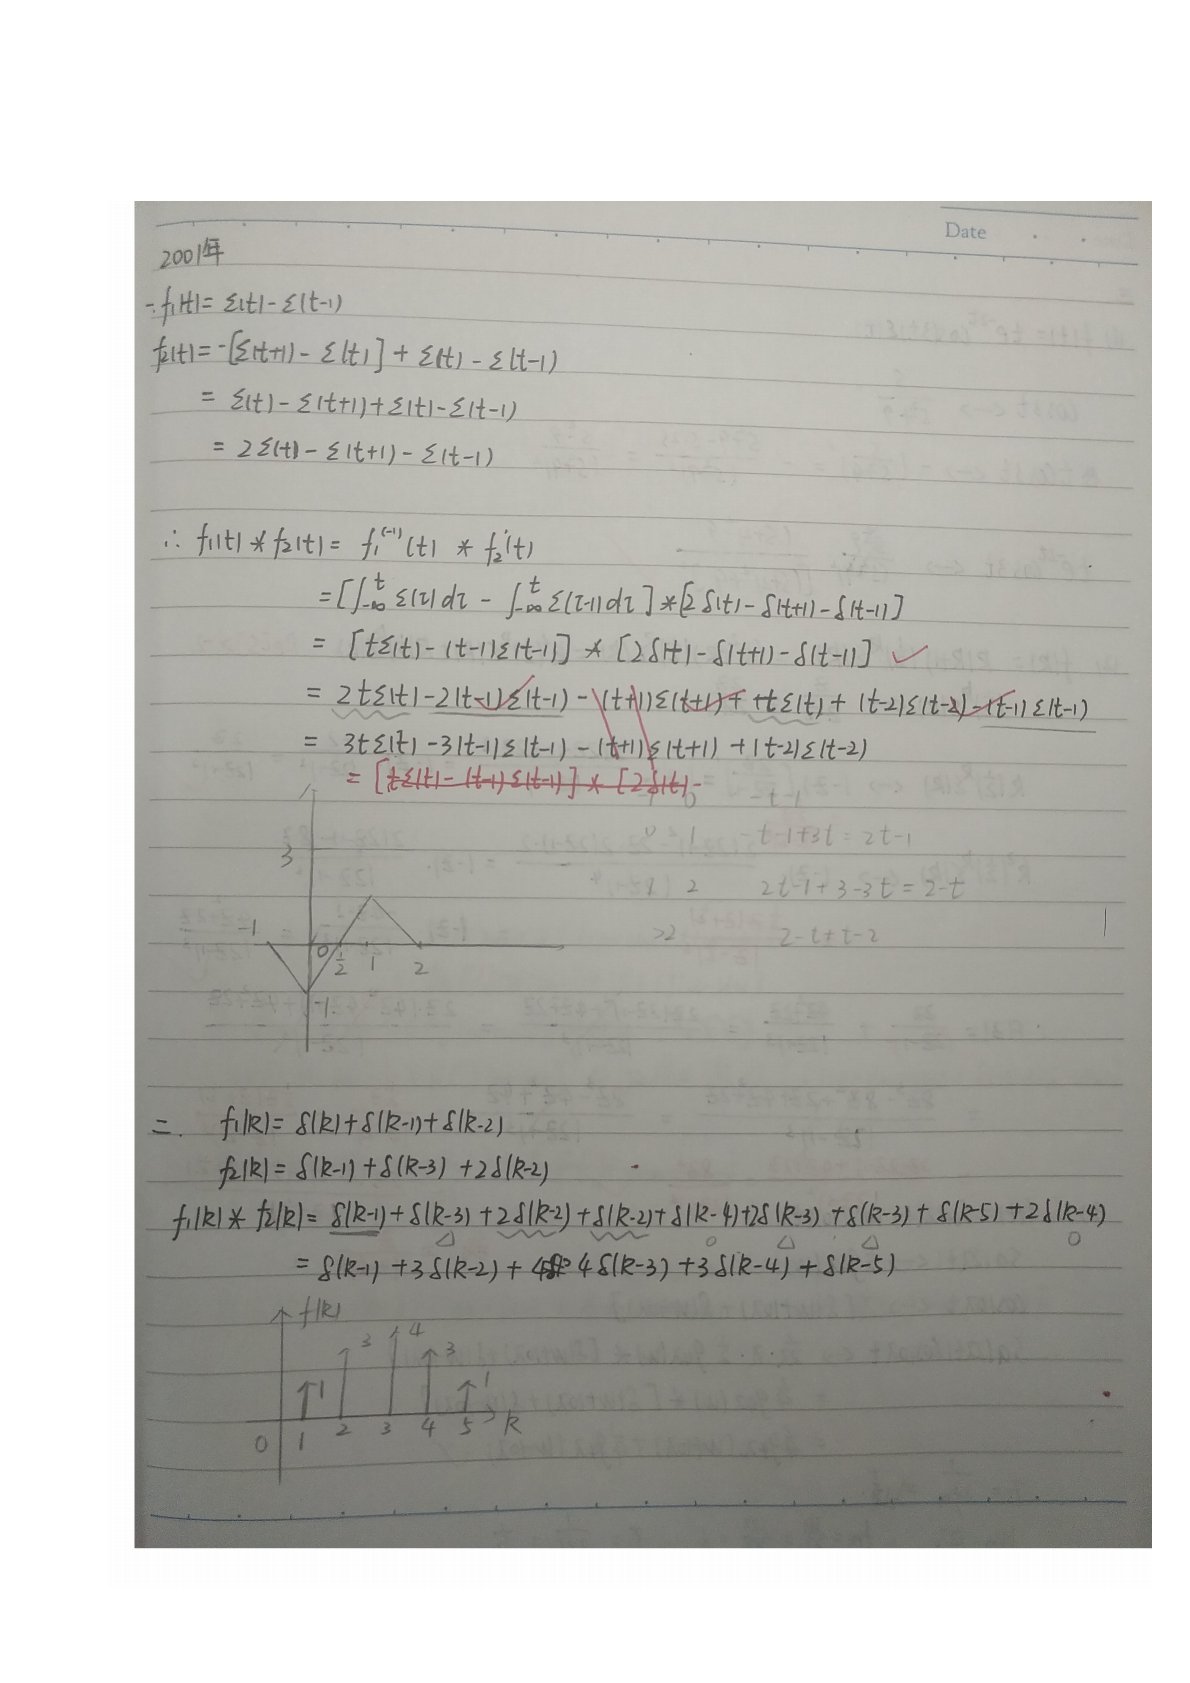 Date
2001年
一. f₁(t)= ε(t)-ε(t-1)
f₂(t)= -[ε(t+1)-ε(t)]+ε(t)-ε(t-1)
= ε(t)-ε(t+1)+ε(t)-ε(t-1)
= 2ε(t)-ε(t+1)-ε(t-1)
∴ f₁(t)*f₂(t)= f₁⁽⁻¹⁾(t) * f₂'(t)
=[∫₋∞ᵗ ε(τ)dτ - ∫₋∞ᵗ ε(τ-1)dτ]*[2δ(t)-δ(t+1)-δ(t-1)]
= [tε(t)-(t-1)ε(t-1)] * [2δ(t)-δ(t+1)-δ(t-1)] ✓
= 2tε(t)-2(t-1)ε(t-1)-(t+1)ε(t+1)+tε(t)+(t-2)ε(t-2)-(t-1)ε(t-1)
= 3tε(t)-3(t-1)ε(t-1)-(t+1)ε(t+1)+(t-2)ε(t-2)
= [tε(t)-(t-1)ε(t-1)]*[2δ(t)-
-1 0 -t-1
0 1 -t-1+3t=2t-1
3
1 2 2t-1+3-3t=2-t
>2 2-t+t-2
-1 0 1/2 1 2
-1
二. f₁(k)= δ(k)+δ(k-1)+δ(k-2)
f₂(k)= δ(k-1)+δ(k-3)+2δ(k-2)
f₁(k)*f₂(k)= δ(k-1)+δ(k-3)+2δ(k-2)+δ(k-2)+δ(k-4)+2δ(k-3)+δ(k-3)+δ(k-5)+2δ(k-4)
= δ(k-1)+3δ(k-2)+4δ(k-3)+3δ(k-4)+δ(k-5)
f(k)
1 3 4 3 1
0 1 2 3 4 5 k